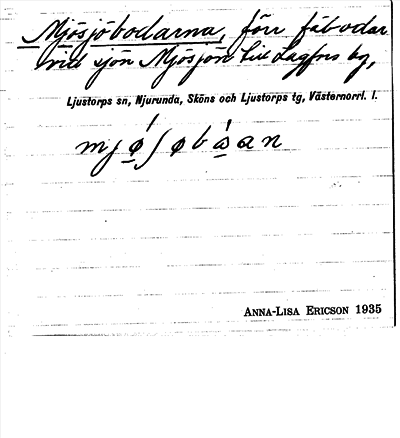 Mjösjöbodarna, förr fäbodar
vid sjön Mjösjön till Lagfors by,
Ljustorps sn, Njurunda, Sköns och Ljustorps tg, Västernorrl. l.
mjǿ̲ʃøbà̲san
ANNA-LISA ERICSON 1935